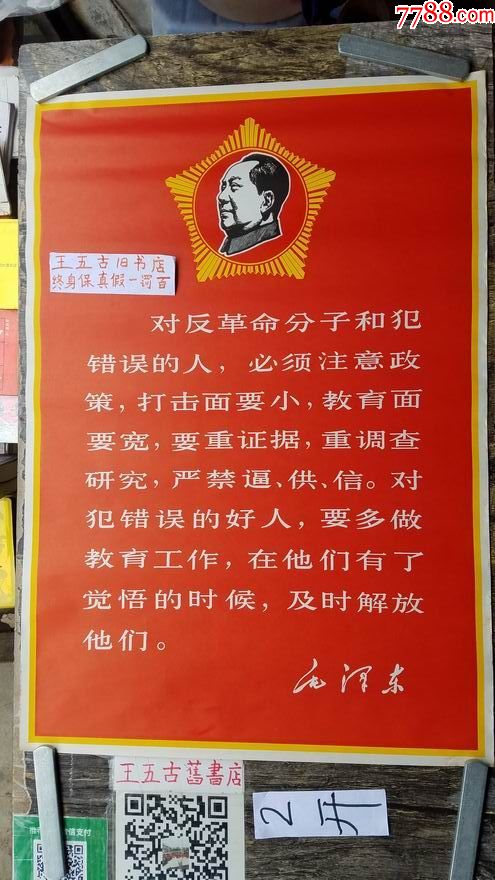 7788.com
王五古旧书店
终身保真假一罚百
对反革命分子和犯
错误的人，必须注意政
策，打击面要小，教育面
要宽，要重证据，重调查
研究，严禁逼、供、信。对
犯错误的好人，要多做
教育工作，在他们有了
觉悟的时候，及时解放
他们。
毛泽东
王五古舊書店
2开
微信支付